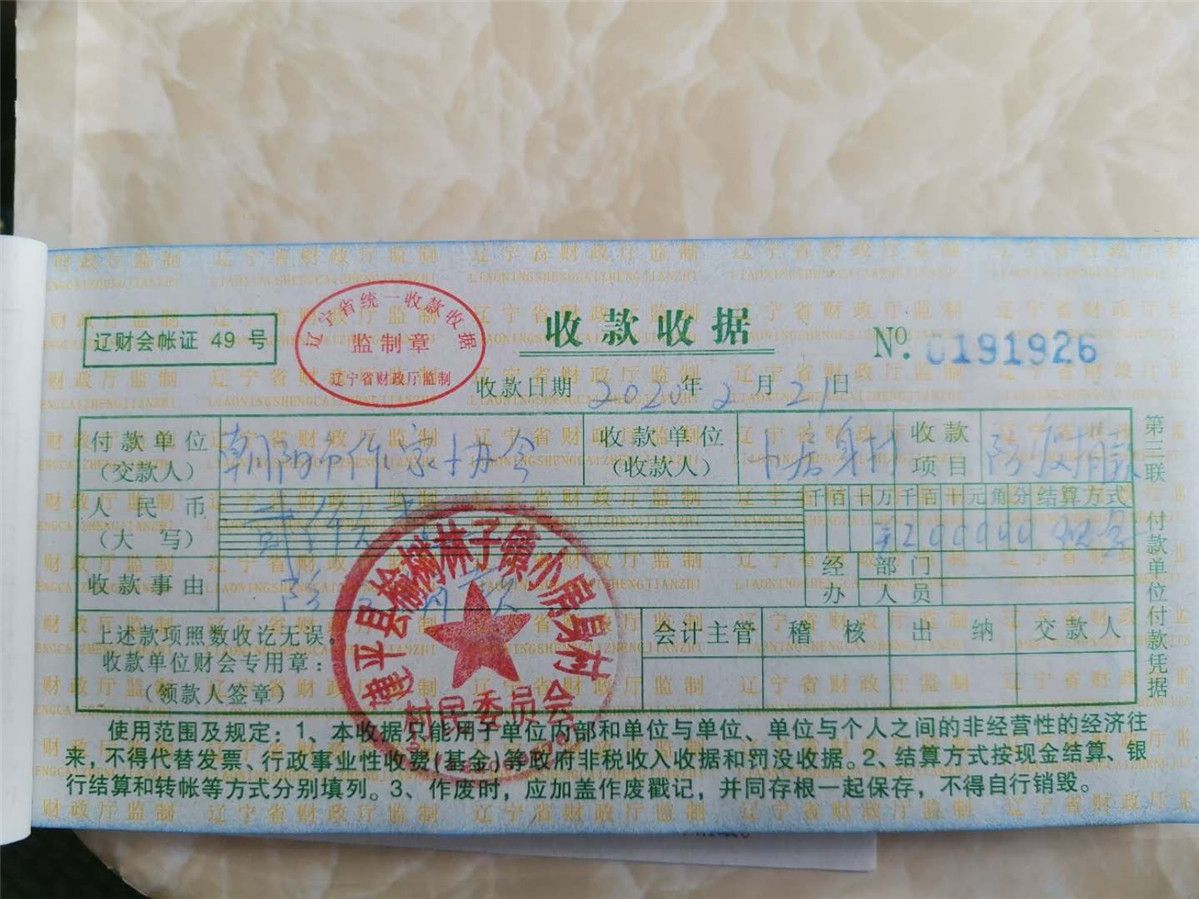 辽财会帐证 49 号
辽宁省统一收款收据
监制章
辽宁省财政厅监制
收款收据
No. 0191926
收款日期 2020年 2月 21日
付款单位
(交款人)
朝阳市作家协会
收款单位
(收款人)
收款
项目
人民币
(大写)
千百十万千百十元角分
结算方式
收款事由
经办
部门
人员
上述款项照数收讫无误。
收款单位财会专用章:
(领款人签章)
会计主管 稽核 出纳 交款人
建平县榆树林子镇小房身村
村民委员会
第三联 付款单位付款凭据
使用范围及规定:1、本收据只能用于单位内部和单位与单位、单位与个人之间的非经营性的经济往
来,不得代替发票、行政事业性收费(基金)等政府非税收入收据和罚没收据。2、结算方式按现金结算、银
行结算和转帐等方式分别填列。3、作废时,应加盖作废戳记,并同存根一起保存,不得自行销毁。